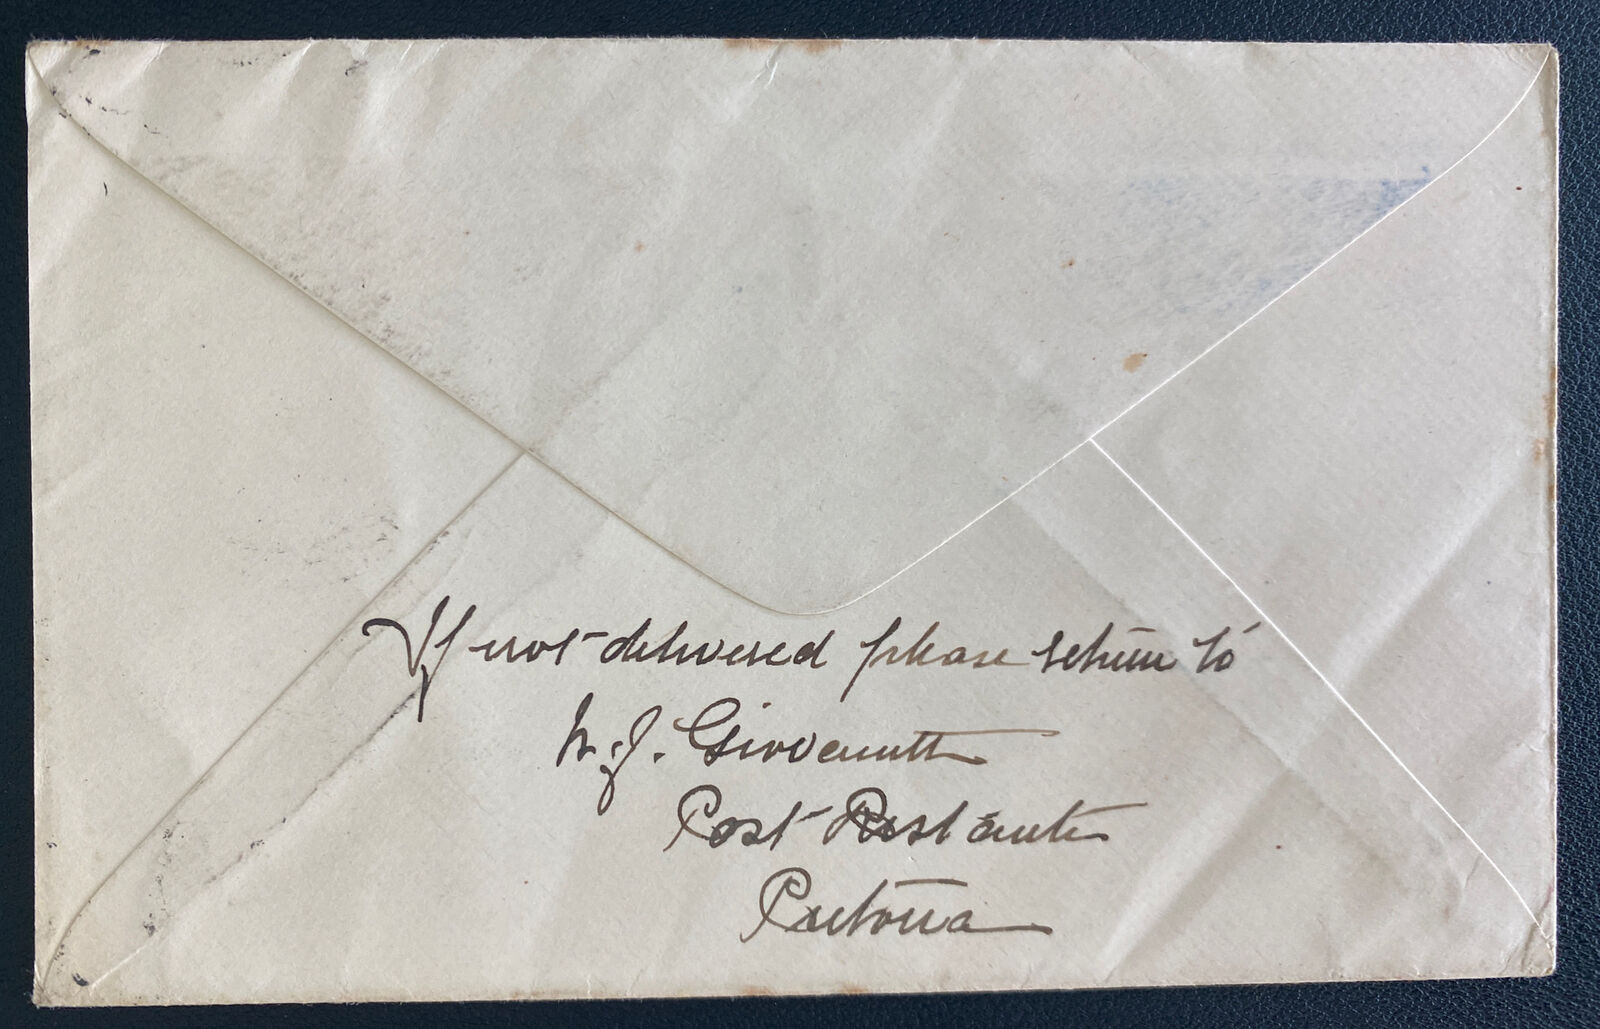 If not delivered please return to
N. J. Giovanetti
Post Restante
Pretoria